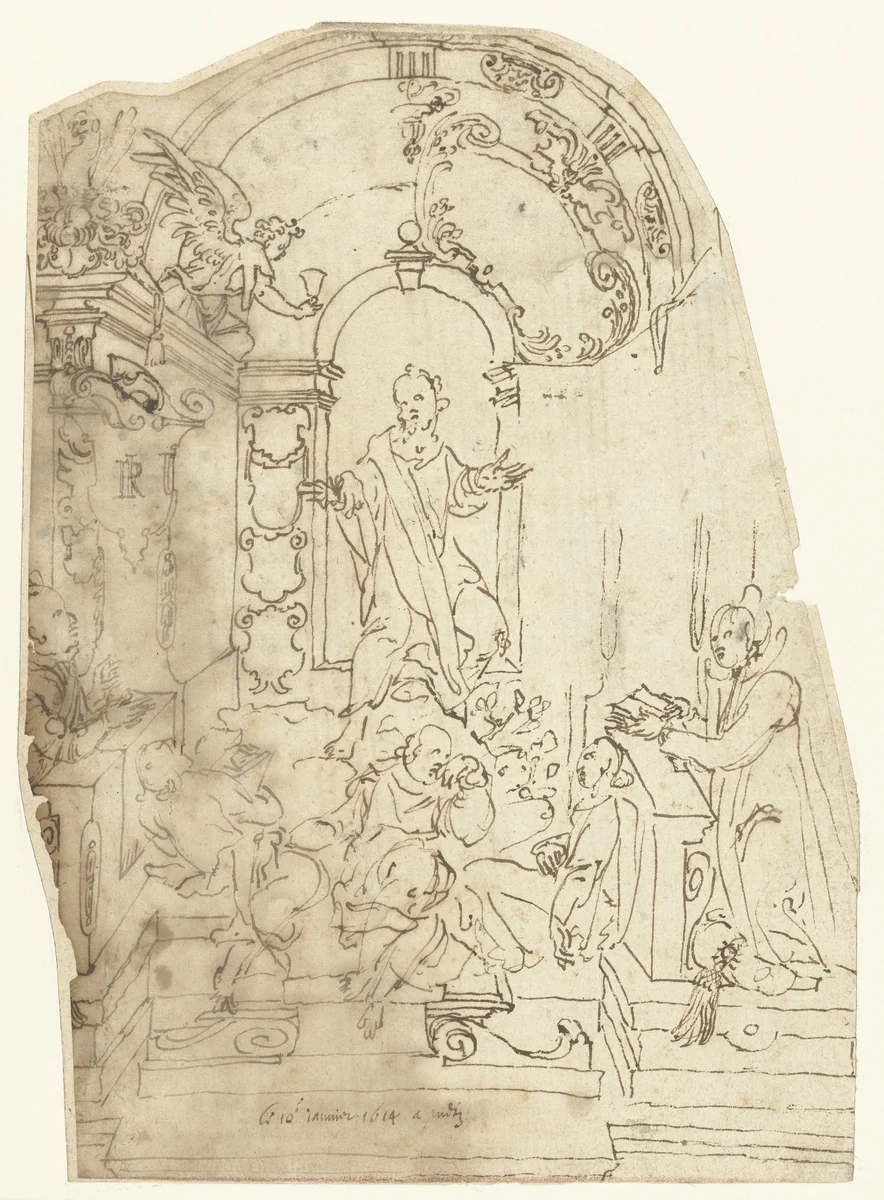 le 10 Januier 1614 a midy